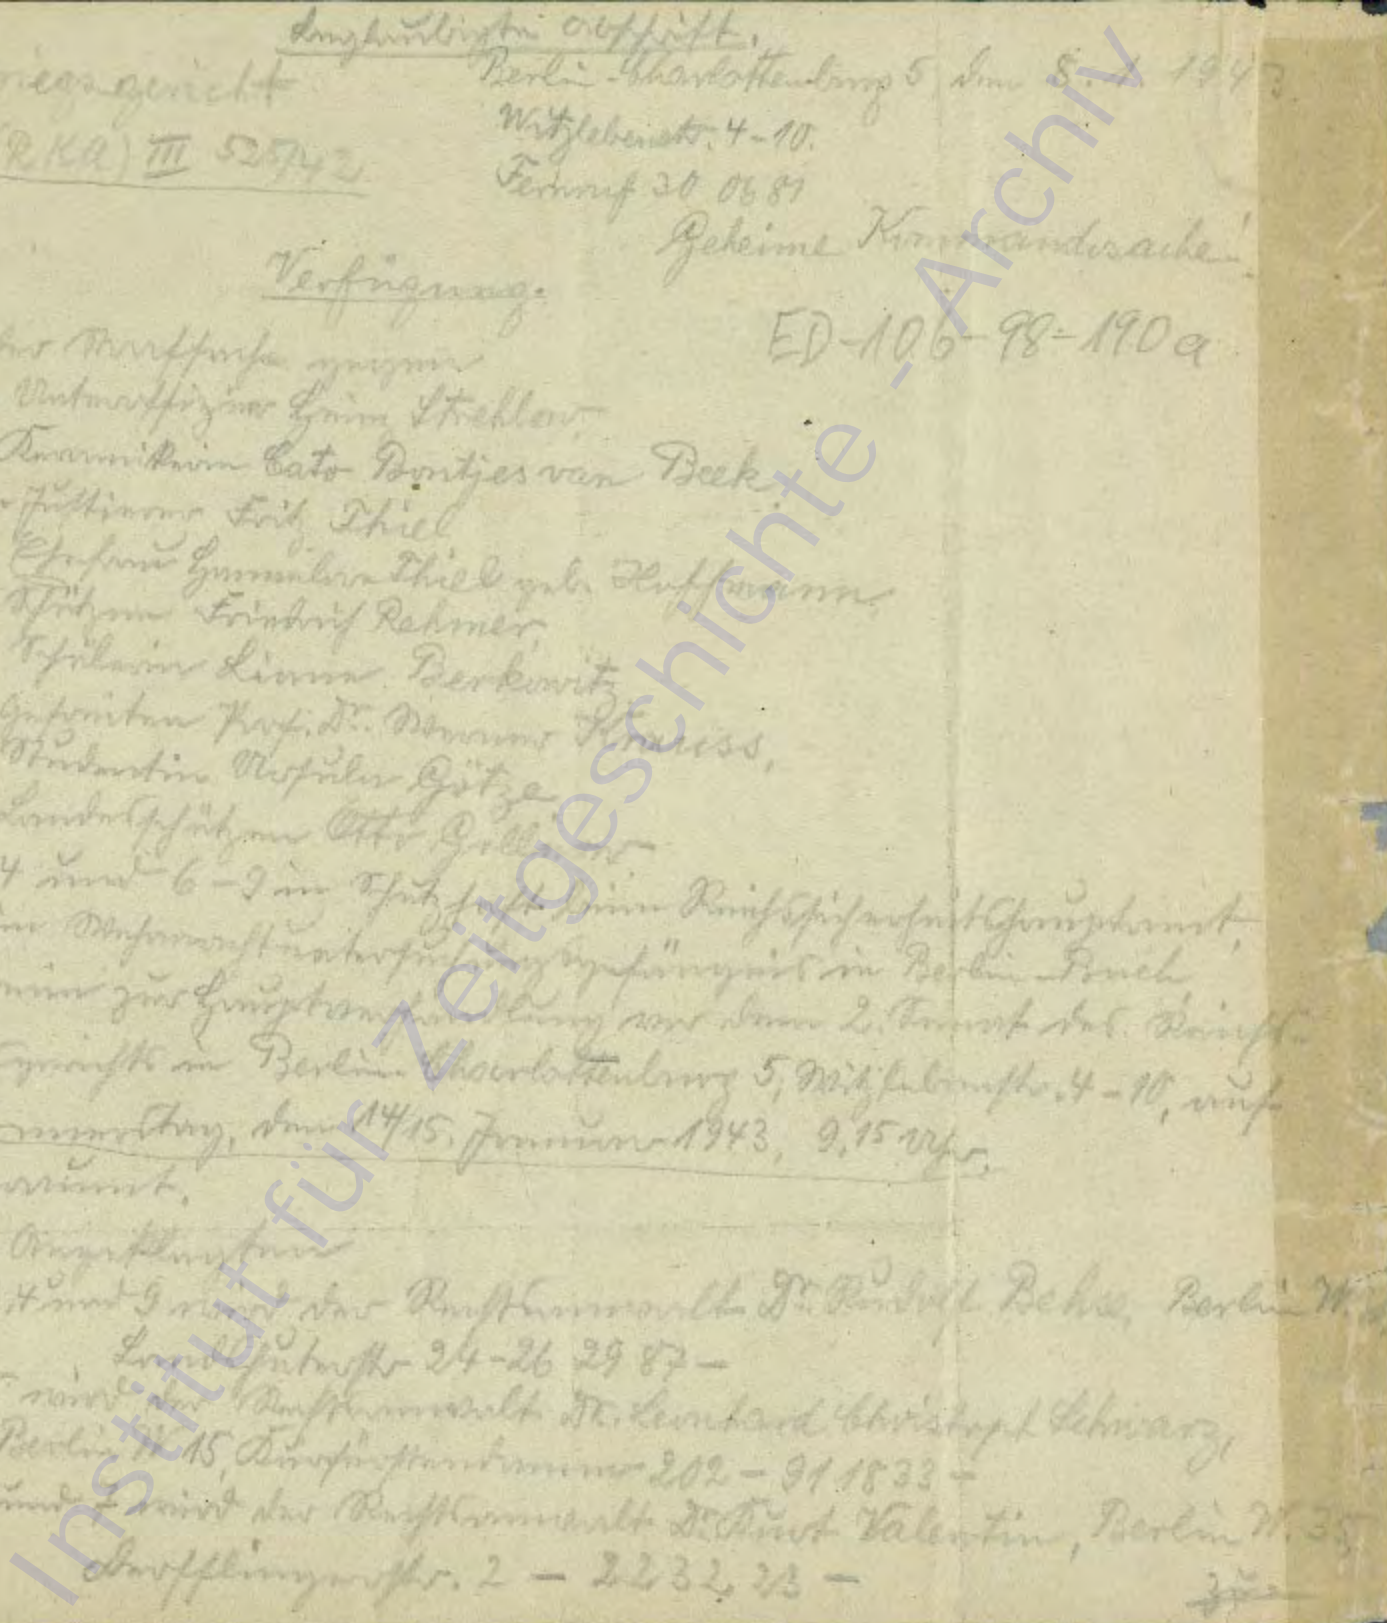 Beglaubigte Abschrift.
riegsgericht Berlin-Charlottenburg 5, den 8. 1. 1943.
(RKA) III 525/42 Witzlebenstr. 4-10.
Fernruf 30 06 81
Geheime Kommandosache!
Verfügung.
ED-106-98-190a
der Strafsache gegen
Unteroffizier Heinz Strehlow,
Keramikerin Cato Bontjes van Beek,
Justierer Fritz Thiel
Ehefrau Hannelore Thiel geb. Hoffmann,
Schützen Friedrich Rehmer,
Schülerin Liane Berkowitz
Gefreiten Prof. Dr. Werner Krauss,
Studentin Ursula Götze
Landesschützen Otto Gollnow
4 und 6-9 in Schutzhaft beim Reichssicherheitshauptamt,
im Wehrmachtuntersuchungsgefängnis in Berlin-Buch
min zur Hauptverhandlung vor dem 2. Senat des Reichs-
gerichts in Berlin-Charlottenburg 5, Witzlebenstr. 4-10, auf
nnerstag, den 14/15. Januar 1943, 9,15 Uhr,
aumt.
Angeklagten
4 und 9 wird der Rechtsanwalt Dr. Rudolf Behse, Berlin W.
Landshuterstr 24-26 29 87 -
wird der Rechtsanwalt Dr. Leonhard Christoph Schwarz,
Berlin W 15, Kurfürstendamm 202 - 91 18 33 -
und 7 wird der Rechtsanwalt Dr. Kurt Valentin, Berlin W. 35
Derfflingerstr. 2 - 22 32 23 -
zu-
Institut für Zeitgeschichte - Archiv